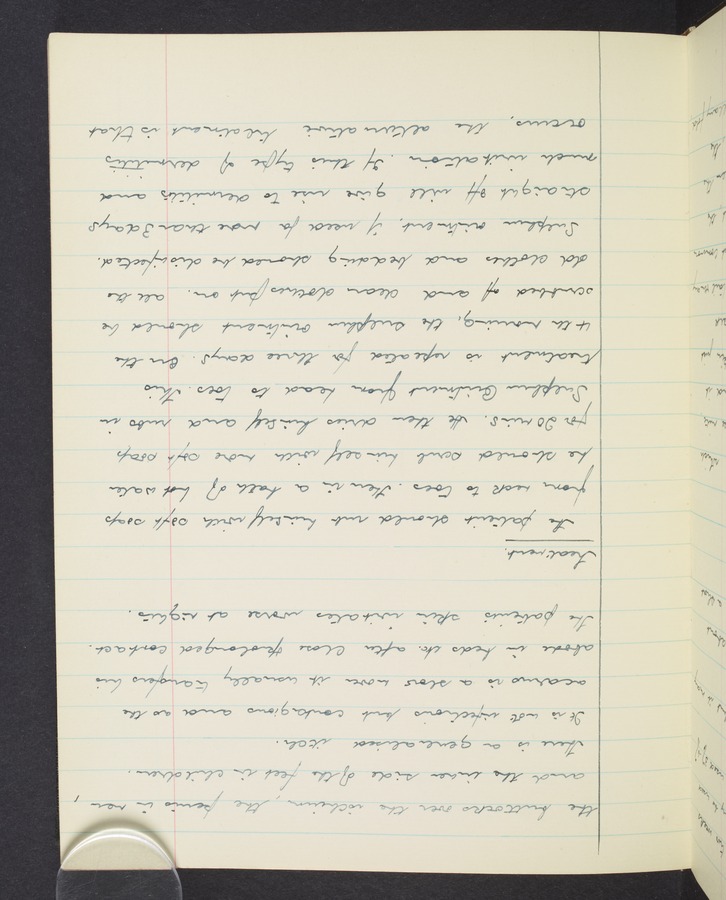 the buttocks over the ischium, the penis in men,
and the inner side of the feet in children.
There is a generalised itch.
It is not infectious but contagious and as the
acarus is a slow mover it usually transfers his
abode in beds etc. after close prolonged contact.
The patients skin irritates worse at nights.
Treatment.
The patient should rub himself with soft soap
from neck to toes. Then in a bath of hot water
he should scrub himself with more soft soap
for 20 mins. He then dries himself and rubs in
Sulphur Ointment from head to toes. This
treatment is repeated for three days. On the
4th morning, the sulphur ointment should be
scrubbed off and clean clothes put on. All the
old clothes and bedding should be disinfected.
Sulphur ointment, if used for more than 3 days
straight off will give rise to dermititis and
much irritation. If this type of dermititis
occurs, the alternative treatment is that